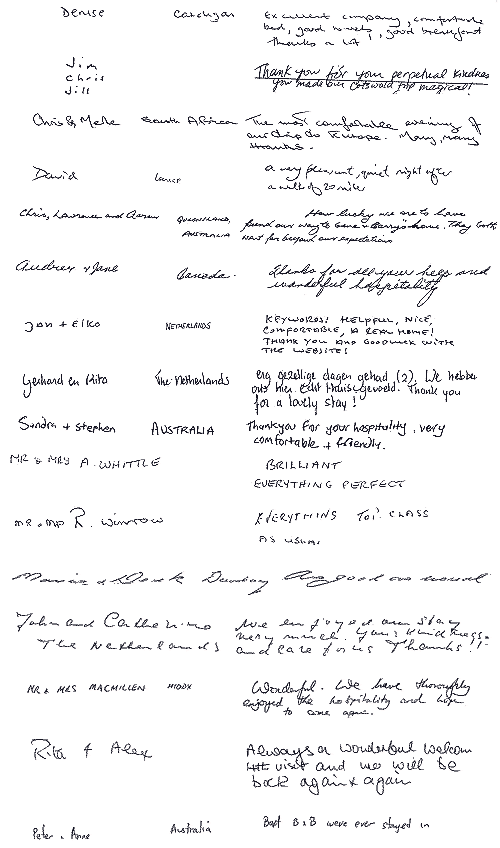 Denise Cardigan Excellent company, comfortable
bed, good towels, good breakfast
Thanks a lot
Jim
Chris Thank you for your perpetual kindness
Jill you made our Cotswold trip magical!
Chris & Mele South African The most comfortable evening of
our trip to Europe. Many, many
thanks.
David a very pleasant, quiet night after
a walk of 20 miles
Chris, Laurence and Aaron QUEENSLAND, How lucky we are to have
AUSTRALIA found our way to Gene + Barry's home. They both
went far beyond our expectations
Audrey + Jane Canada. Thanks for all your help and
wonderful hospitality
Jan + Elko NETHERLANDS KEYWORDS! HELPFUL, NICE,
COMFORTABLE, A REAL HOME!
THANK YOU AND GOODLUCK WITH
THE WEBSITE!
Gerhard en Rita The Netherlands erg gezellige dagen gehad (2). We hebben
ons hier echt thuis gevoeld. Thank you
for a lovely stay!
Sandra + Stephen AUSTRALIA Thankyou for your hospitality, very
comfortable + friendly.
MR & MRS A. WHITTLE BRILLIANT
EVERYTHING PERFECT
MR & MRS R. WINROW EVERYTHING TOP CLASS
AS USUAL
& Derek As good as usual
John and Catherine We enjoyed our stay
The Netherlands very much. Your kindness
and care for us Thanks!!
MR & MRS MACMILLEN MIDDX Wonderful. We have thoroughly
enjoyed the hospitality and hope
to come again.
Rita & Alex Always a wonderful welcome
4th visit and we will be
back again & again
Peter + Anne Australia Best B&B were ever stayed in